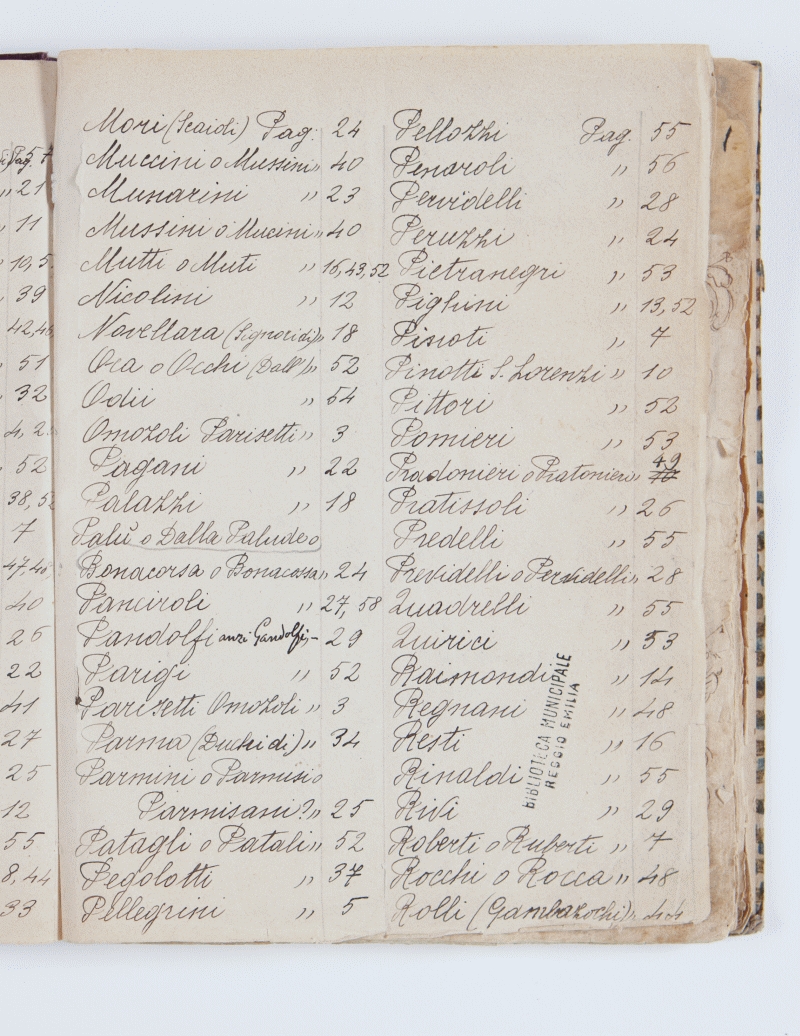 Mori (Scaidi) Pag. 24
Muccini o Mussini " 40
Munarini " 23
Mussini o Mucini " 40
Mutti o Muti " 16, 43, 52
Nicolini " 12
Novellara (Signori di) " 18
Oca o Occhi (Dall') " 52
Odii " 54
Omozoli Parisetti " 3
Pagani " 22
Palazzi " 18
Palù o Dalla Palude o
Bonacorsa o Bonacossa " 24
Panciroli " 27, 58
Pandolfi anzi Gandolfi – 29
Parigi " 52
Parisetti Omozoli " 3
Parma (Duchi di) " 34
Parmini o Parmisi o
Parmisani? " 25
Patagli o Patali " 52
Pegolotti " 37
Pellegrini " 5
Pellozzi Pag. 55
Penaroli " 56
Pervidelli " 28
Peruzzi " 24
Pietranegri " 53
Pighini " 13, 52
" 7
Pinotti S. Lorenzi " 10
Pittori " 52
Pomieri " 53
Pradonieri o Pratonieri " 49
Pratissoli " 26
Predelli " 55
Previdelli o Pervidelli " 28
Quadrelli " 55
Quirici " 53
Raimondi " 14
Regnani " 48
Resti " 16
Rinaldi " 55
Rivi " 29
Roberti o Ruberti " 7
Rocchi o Rocca " 48
Rolli (Gambazochi) " 44
BIBLIOTECA MUNICIPALE
REGGIO EMILIA
1
Pag. 57
" 21
" 11
" 10, 5
" 39
42, 46
" 51
" 32
4, 2
" 52
38, 52
7
47, 4
40
26
22
41
27
25
12
55
8, 44
33